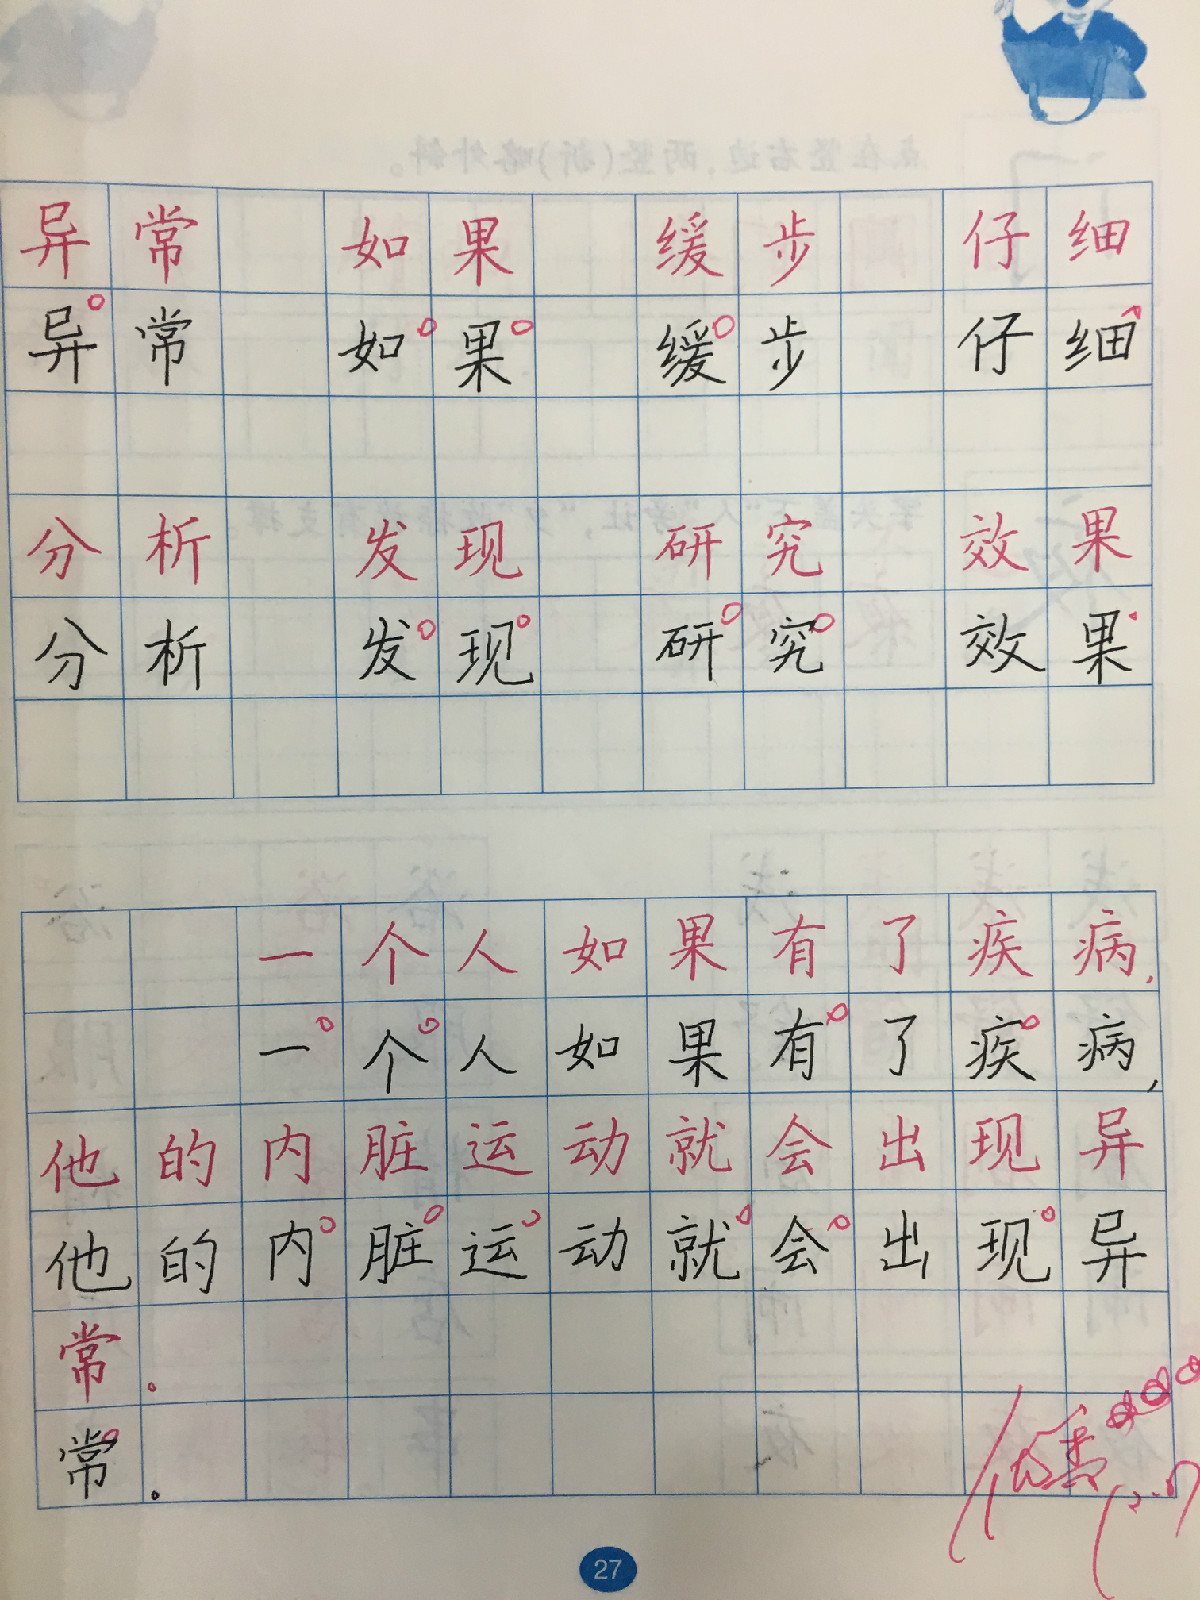 异常 如果 缓步 仔细
异常 如果 缓步 仔细
分析 发现 研究 效果
分析 发现 研究 效果
一个人如果有了疾病,
一个人如果有了疾病,
他的内脏运动就会出现异
他的内脏运动就会出现异
常.
常.
27